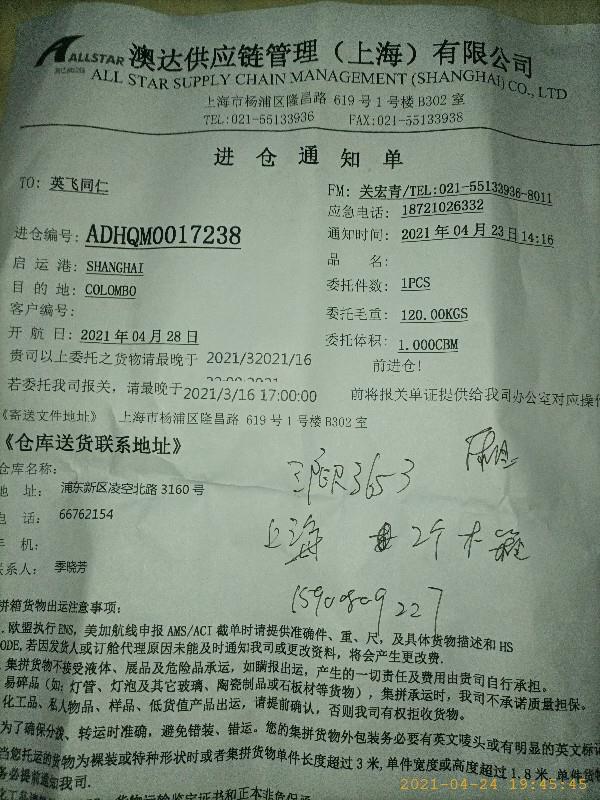 ALLSTAR 澳达供应链管理（上海）有限公司
ALL STAR SUPPLY CHAIN MANAGEMENT (SHANGHAI) CO., LTD
上海市杨浦区隆昌路 619 号 1 号楼 B302 室
TEL:021-55133936 FAX:021-55133938
进仓通知单
TO: 英飞同仁
FM: 关宏青/TEL:021-55133936-8011
应急电话: 18721026332
进仓编号: ADHQM0017238
通知时间: 2021 年 04 月 23 日 14:16
启运港: SHANGHAI
品名:
目的地: COLOMBO
委托件数: 1PCS
客户编号:
委托毛重: 120.00KGS
开航日: 2021 年 04 月 28 日
委托体积: 1.000CBM
贵司以上委托之货物请最晚于 2021/32021/16
前进仓!
若委托我司报关，请最晚于 2021/3/16 17:00:00 前将报关单证提供给我司办公室对应操作
《寄送文件地址》 上海市杨浦区隆昌路 619 号 1 号楼 B302 室
《仓库送货联系地址》
仓库名称:
地 址: 浦东新区凌空北路 3160 号
3653
电 话: 66762154
上海 2个木箱
手 机:
联系人: 季晓芳
15900809227
拼箱货物出运注意事项:
.欧盟执行 ENS，美加航线申报 AMS/ACI 截单时请提供准确件、重、尺，及具体货物描述和 HS
CODE,若因发货人或订舱代理原因未能及时通知我司或更改资料，将会产生更改费.
.集拼货物不接受液体、展品及危险品承运，如瞒报出运，产生的一切责任及费用由贵司自行承担。
易碎品(如: 灯管、灯泡及其它玻璃、陶瓷制品或石板材等货物)，集拼承运时，我司不承诺质量担保。
化工品、私人物品、样品、低货值产品出运，请提前确认，否则我司有权拒收货物。
为了确保分拨、转运时准确，避免错装、错运。您的集拼货物外包装务必要有英文唛头或有明显的英文标识
当您托运的货物为裸装或特种形状时或者集拼货物单件长度超过 3 米,单件宽度或高度超过 1.8 米,单件货物
务必提前通知我司.
2021-04-24 19:45:45